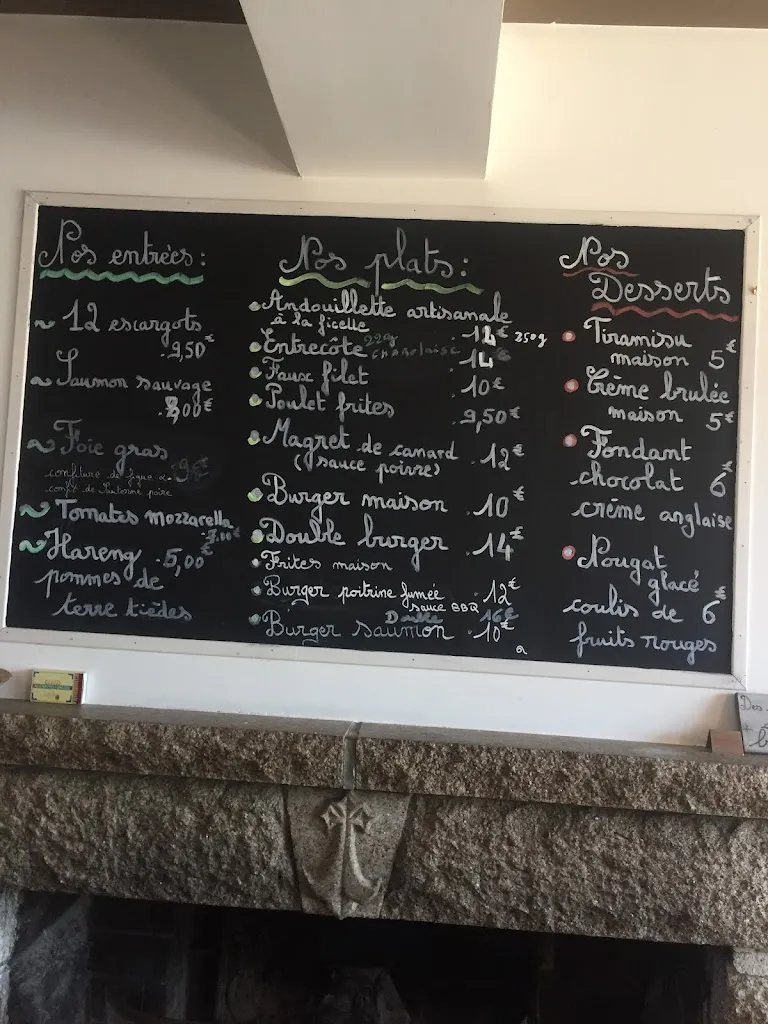 Nos entrées :
12 escargots
9,50€
Saumon sauvage
8,00€
Foie gras
9€
confiture de figue &
confit de Sauterne poire
Tomates mozzarella
7.00€
Hareng 5,00€
pommes de
terre tièdes
Nos plats :
Andouillette artisanale
à la ficelle 12€ 250g
Entrecôte 220g charolaise 14€
Faux filet 10€
Poulet frites 9,50€
Magret de canard 12€
(sauce poivre)
Burger maison 10€
Double burger 14€
Frites maison
Burger poitrine fumée 12€
sauce BBQ
Double 16€
Burger saumon 10€
a
Nos
Desserts
Tiramisu
maison 5€
Crème brulée
maison 5€
Fondant
chocolat 6€
crème anglaise
Nougat
glacé
coulis de 6€
fruits rouges
Des